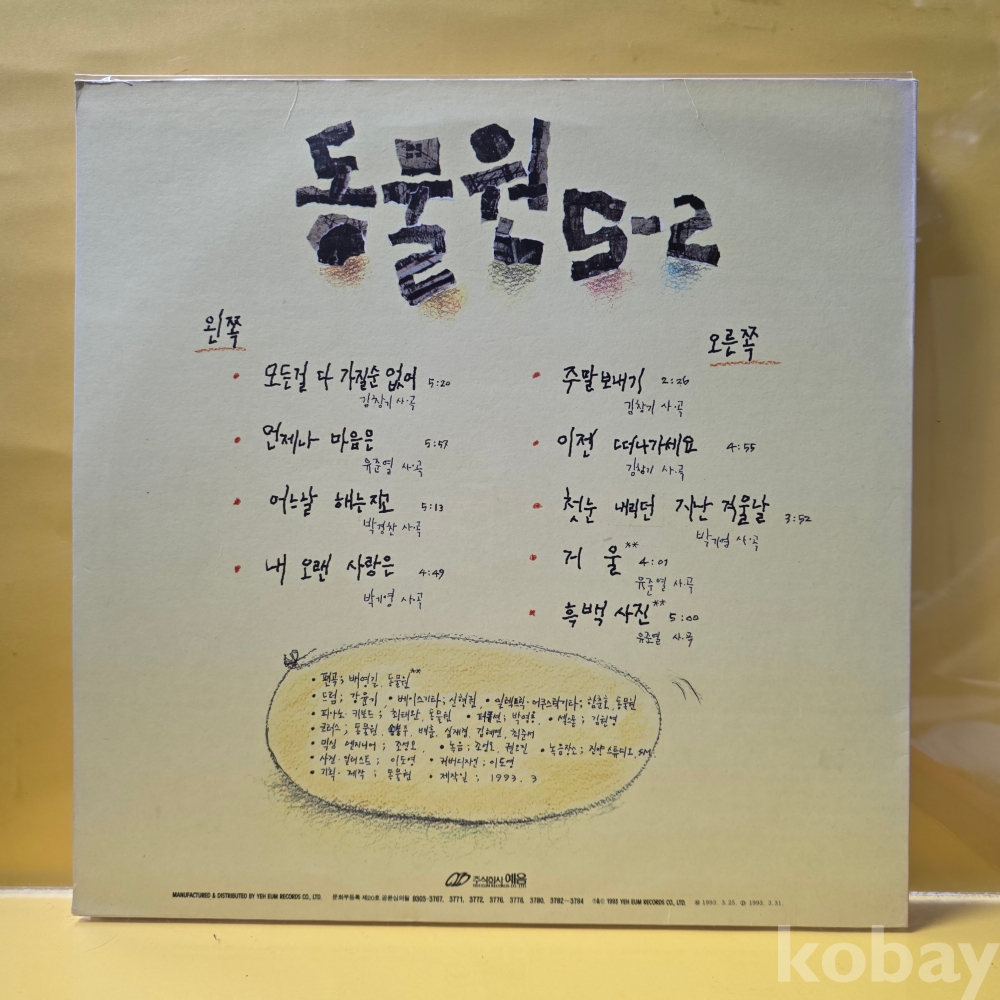 동물원 5-2
왼쪽
모든걸 다 가질순 없어 5:20
김창기 사·곡
언제나 마음은 5:57
유준열 사·곡
어느날 해는지고 5:13
박경찬 사·곡
내 오랜 사랑은 4:49
박기영 사·곡
오른쪽
주말 보내기 2:26
김창기 사·곡
이젠 떠나가세요 4:55
김창기 사·곡
첫눈 내리던 지난 겨울날 3:52
박기영 사·곡
거울** 4:01
유준열 사·곡
흑백 사진** 5:00
유준열 사·곡
• 편곡; 배영길, 동물원**
• 드럼; 강윤기 • 베이스기타; 신현권 • 일렉트릭·어쿠스틱기타; 함춘호, 동물원
• 피아노·키보드; 최태완, 동물원 • 퍼커션; 박영용 • 색소폰; 김원용
• 코러스; 동물원,
• 믹싱 엔지니어; • 녹음; • 녹음장소; 스튜디오, SM
• 사진·일러스트; 이도영 • 커버디자인; 이도영
• 기획·제작; 동물원 • 제작일; 1993. 3
주식회사 예음
YEH EUM RECORDS CO., LTD.
MANUFACTURED & DISTRIBUTED BY YEH EUM RECORDS CO., LTD. 문화부등록 제20호 공윤심의필 9303-3767, 3771, 3772, 3776, 3778, 3780, 3782~3784 ℗&© 1993 YEH EUM RECORDS CO., LTD. 1993. 3.25. 1993. 3.31.
kobay